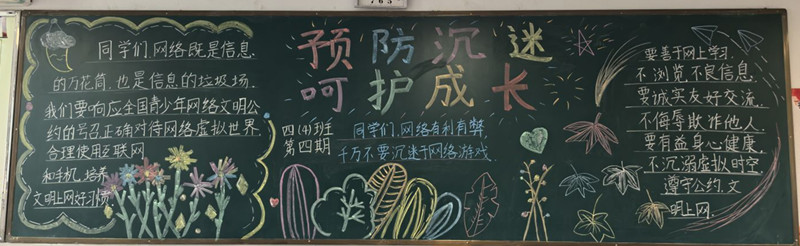 同学们,网络既是信息
的万花筒,也是信息的垃圾场.
我们要响应全国青少年网络文明公
约的号召正确对待网络虚拟世界,
合理使用互联网
和手机,培养
文明上网好习惯
预防沉迷
呵护成长
四(4)班
第四期
同学们,网络有利有弊,
千万不要沉迷于网络游戏.
要善于网上学习,
不浏览不良信息.
要诚实友好交流.
不侮辱欺诈他人.
要有益身心健康,
不沉溺虚拟时空.
遵守公约,文
明上网.